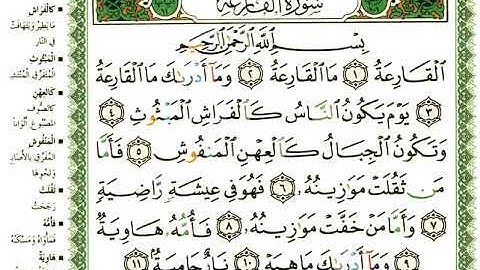 سُورَةُ الْقَارِعَةِ
بِسْمِ ٱللَّهِ ٱلرَّحْمَٰنِ ٱلرَّحِيمِ
ٱلْقَارِعَةُ ١ مَا ٱلْقَارِعَةُ ٢ وَمَآ أَدْرَىٰكَ مَا ٱلْقَارِعَةُ
٣ يَوْمَ يَكُونُ ٱلنَّاسُ كَٱلْفَرَاشِ ٱلْمَبْثُوثِ ٤
وَتَكُونُ ٱلْجِبَالُ كَٱلْعِهْنِ ٱلْمَنفُوشِ ٥ فَأَمَّا
مَن ثَقُلَتْ مَوَٰزِينُهُۥ ٦ فَهُوَ فِى عِيشَةٍ رَّاضِيَةٍ
٧ وَأَمَّا مَنْ خَفَّتْ مَوَٰزِينُهُۥ ٨ فَأُمُّهُۥ هَاوِيَةٌ
٩ وَمَآ أَدْرَىٰكَ مَا هِيَهْ ١٠ نَارٌ حَامِيَةٌۢ ١١
كَالْفَرَاشِ
مَا يَطِيرُ وَيَتَهَافَتُ
في النَّارِ
الْمَبْثُوثِ
الْمُتَفَرِّقِ الْمُنْتَشِرِ
كَالْعِهْنِ
كَالصُّوفِ
الْمَصْبُوغِ أَلْوَاناً
الْمَنْفُوشِ
الْمُفَرَّقِ بِالأَصَابِعِ
وَنَحْوِهَا
ثَقُلَتْ
رَجَحَتْ
فَأُمُّهُ
فَمَأْوَاهُ وَمَسْكَنُهُ
هَاوِيَةٌ